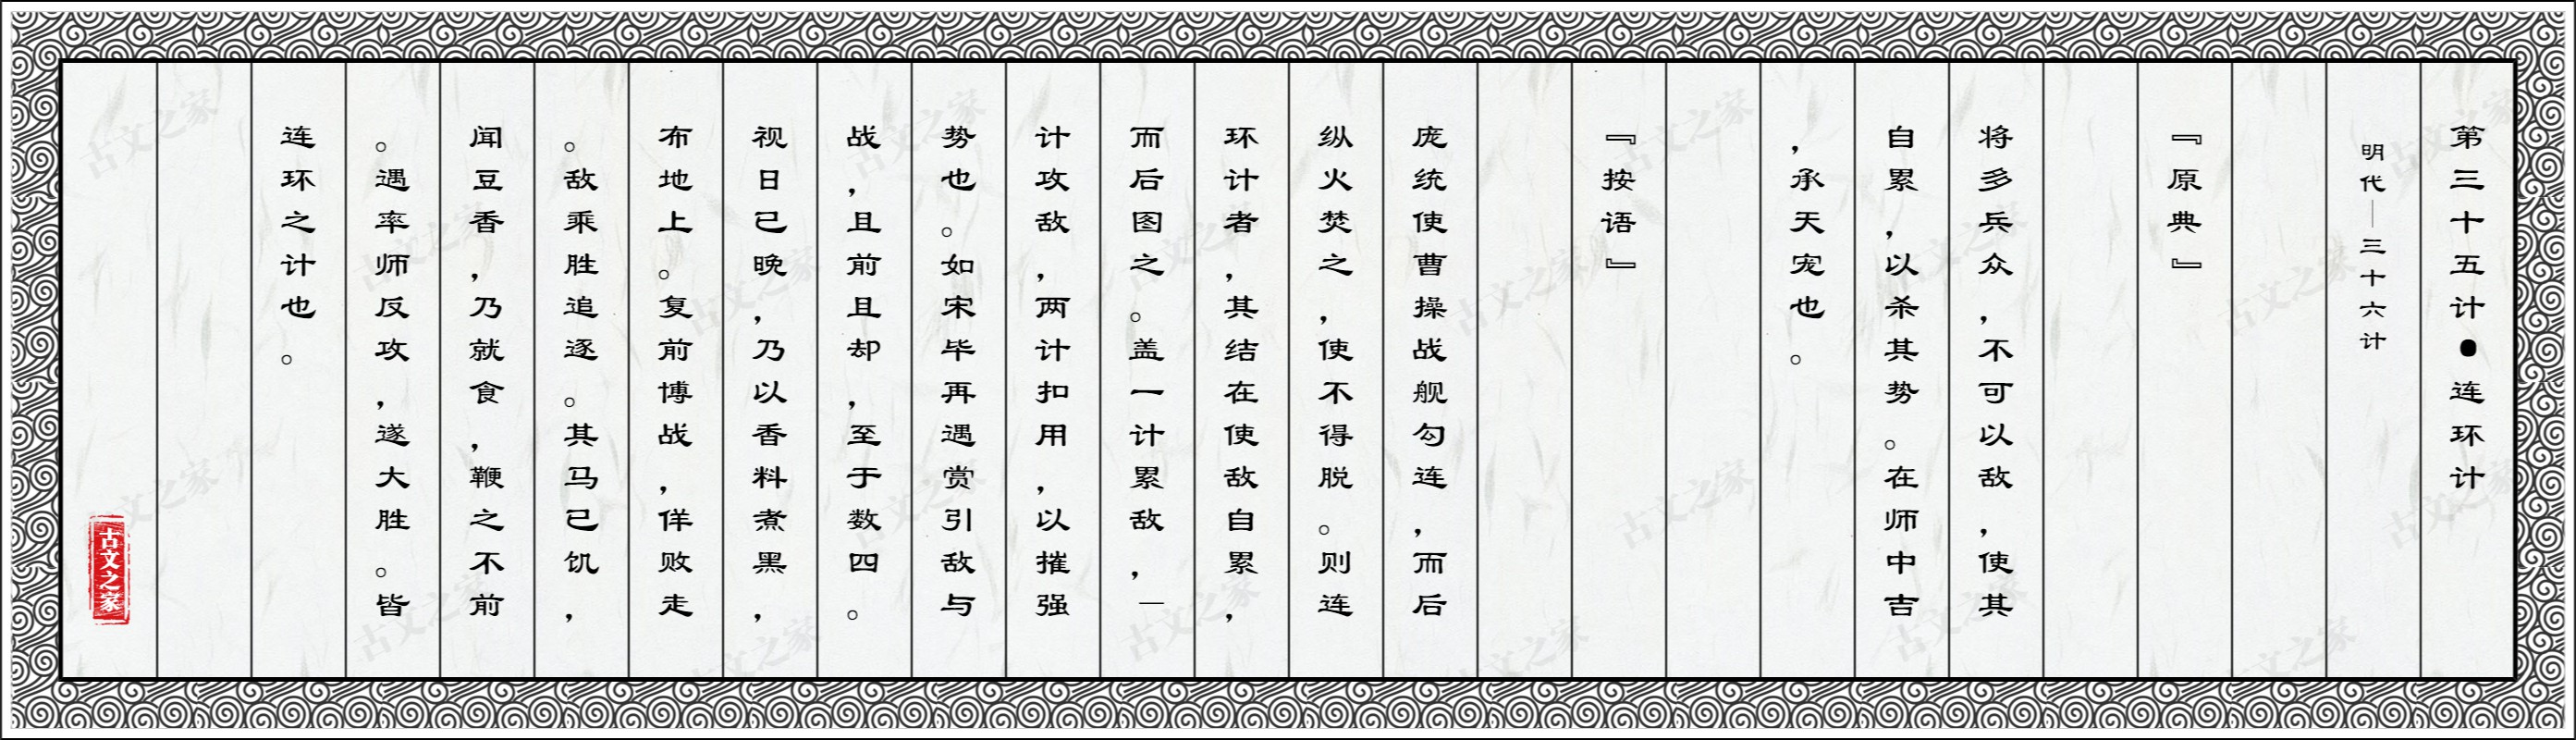 第三十五计●连环计
明代｜三十六计
『原典』
将多兵众，不可以敌，使其
自累，以杀其势。在师中吉
，承天宠也。
『按语』
庞统使曹操战舰勾连，而后
纵火焚之，使不得脱。则连
环计者，其结在使敌自累，
而后图之。盖一计累敌，一
计攻敌，两计扣用，以摧强
势也。如宋毕再遇赏引敌与
战，且前且却，至于数四。
视日已晚，乃以香料煮黑，
布地上。复前博战，佯败走
。敌乘胜追逐。其马已饥，
闻豆香，乃就食，鞭之不前
。遇率师反攻，遂大胜。皆
连环之计也。
古文之家